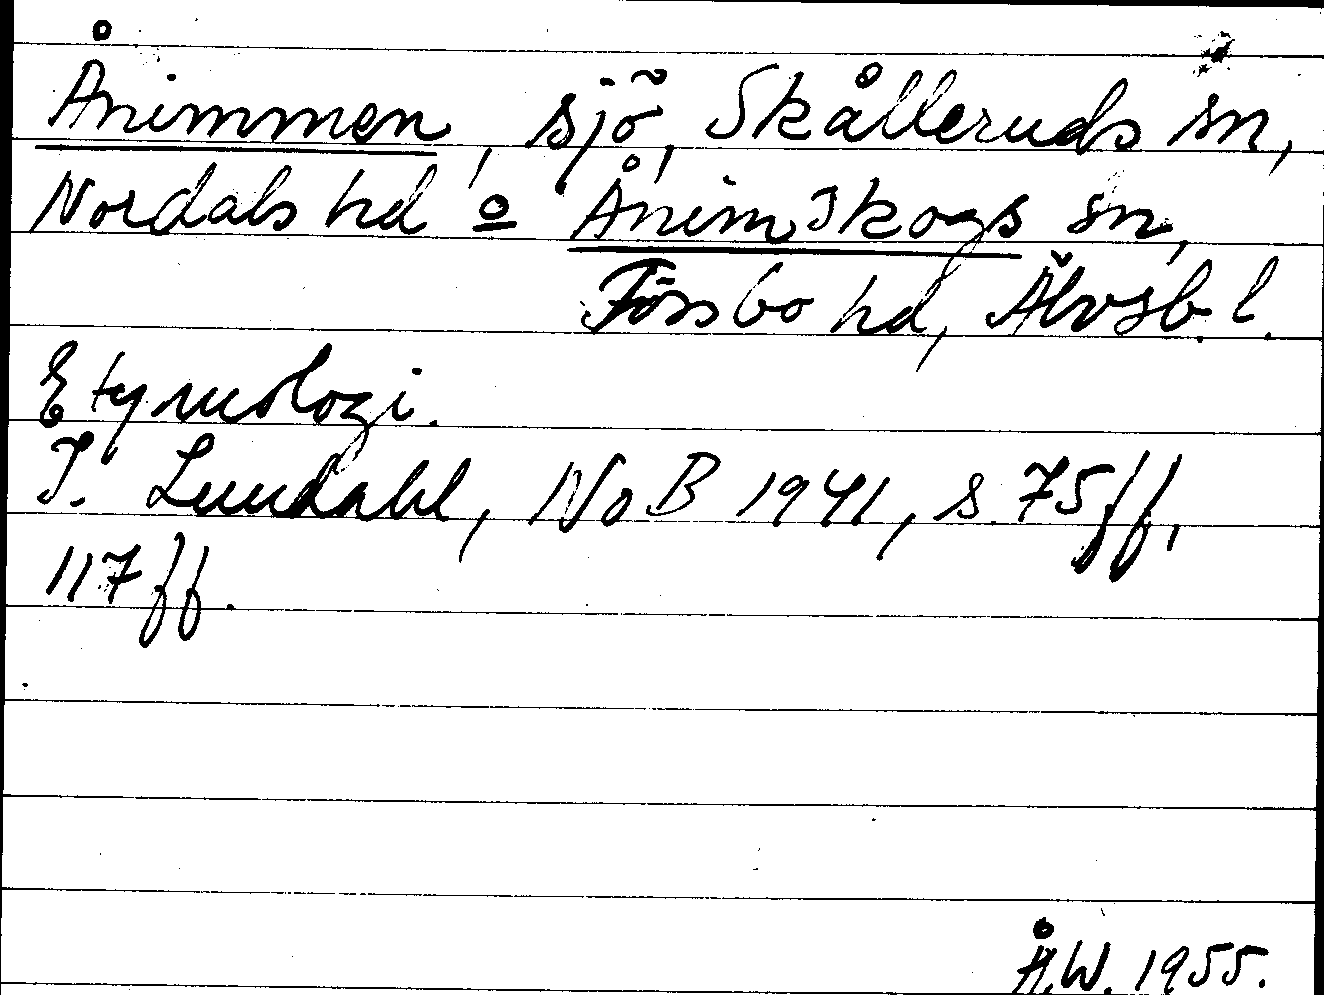 Ånimmen, sjö, Skålleruds sn,
Nordals hd o Ånimskogs sn,
Tössbo hd, Älvsb. l.
Etymologi.
I. Lundahl, NoB 1941, s. 75ff,
117ff.
Å.W. 1955.